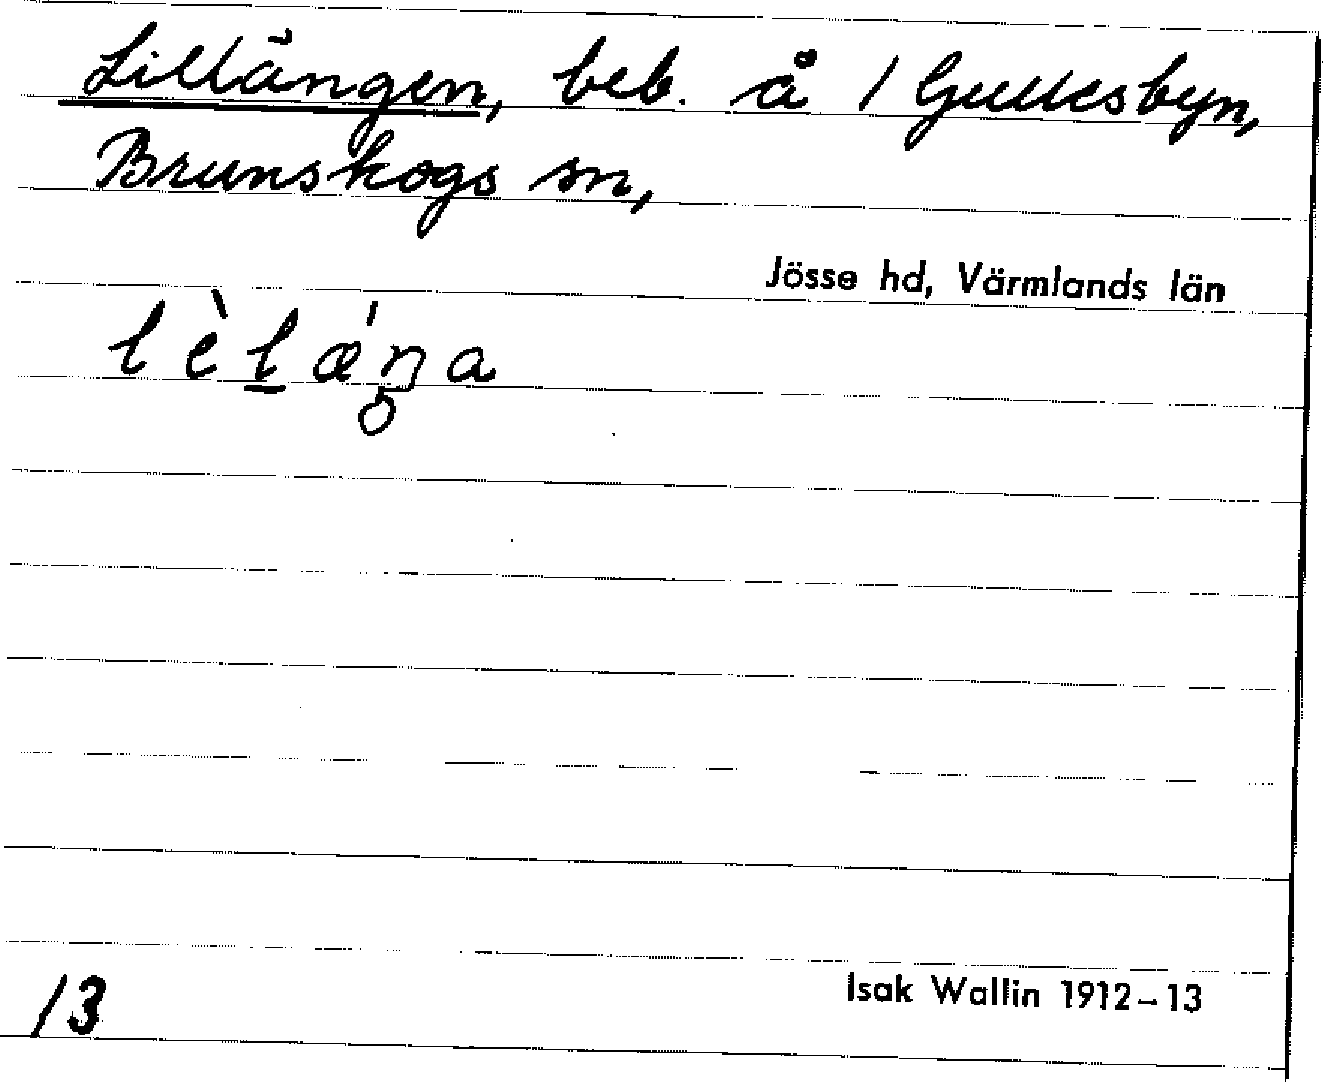 Lillängen, beb. å 1 Gullesbyn,
Brunskogs sn,
Jösse hd, Värmlands län
lèlǽŋa
13
Isak Wallin 1912–13